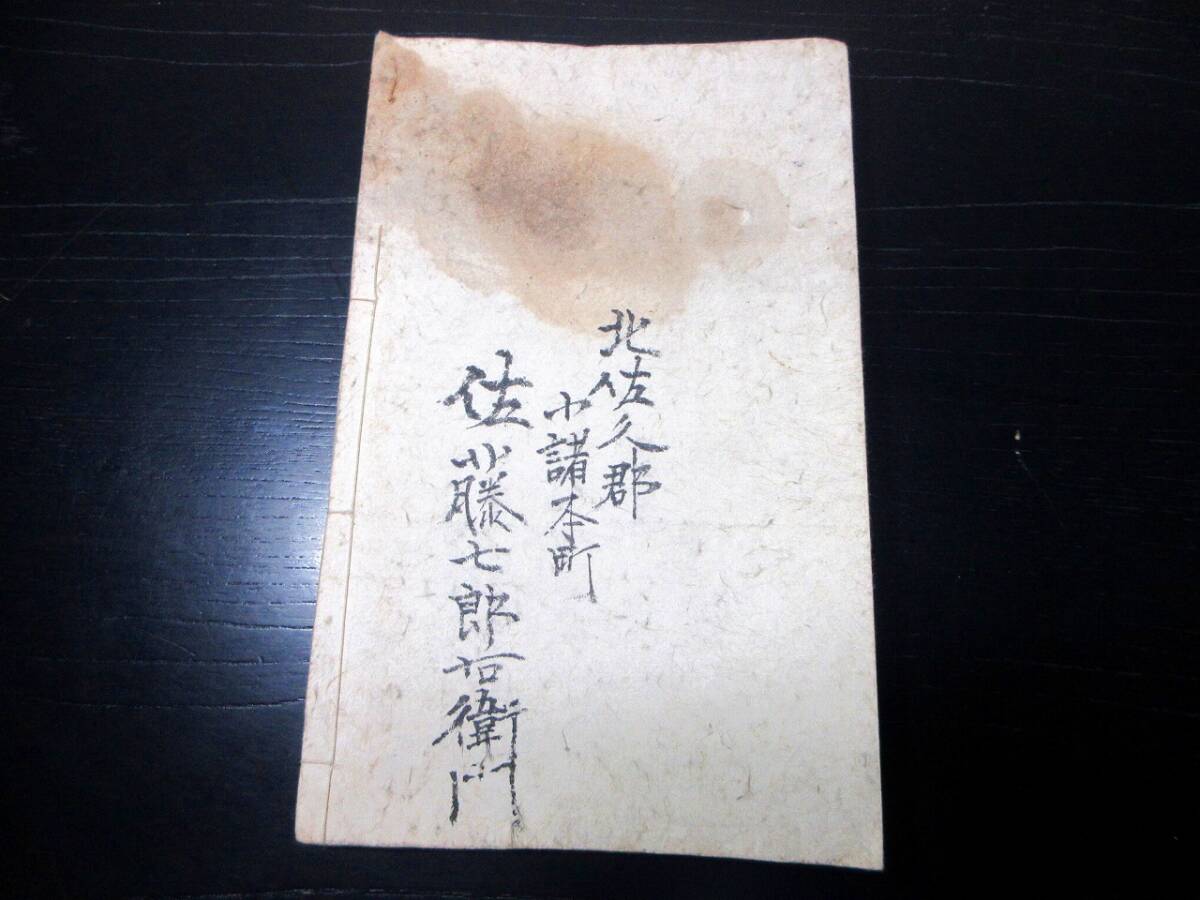 北佐久郡
小諸本町
佐藤七郎右衛門